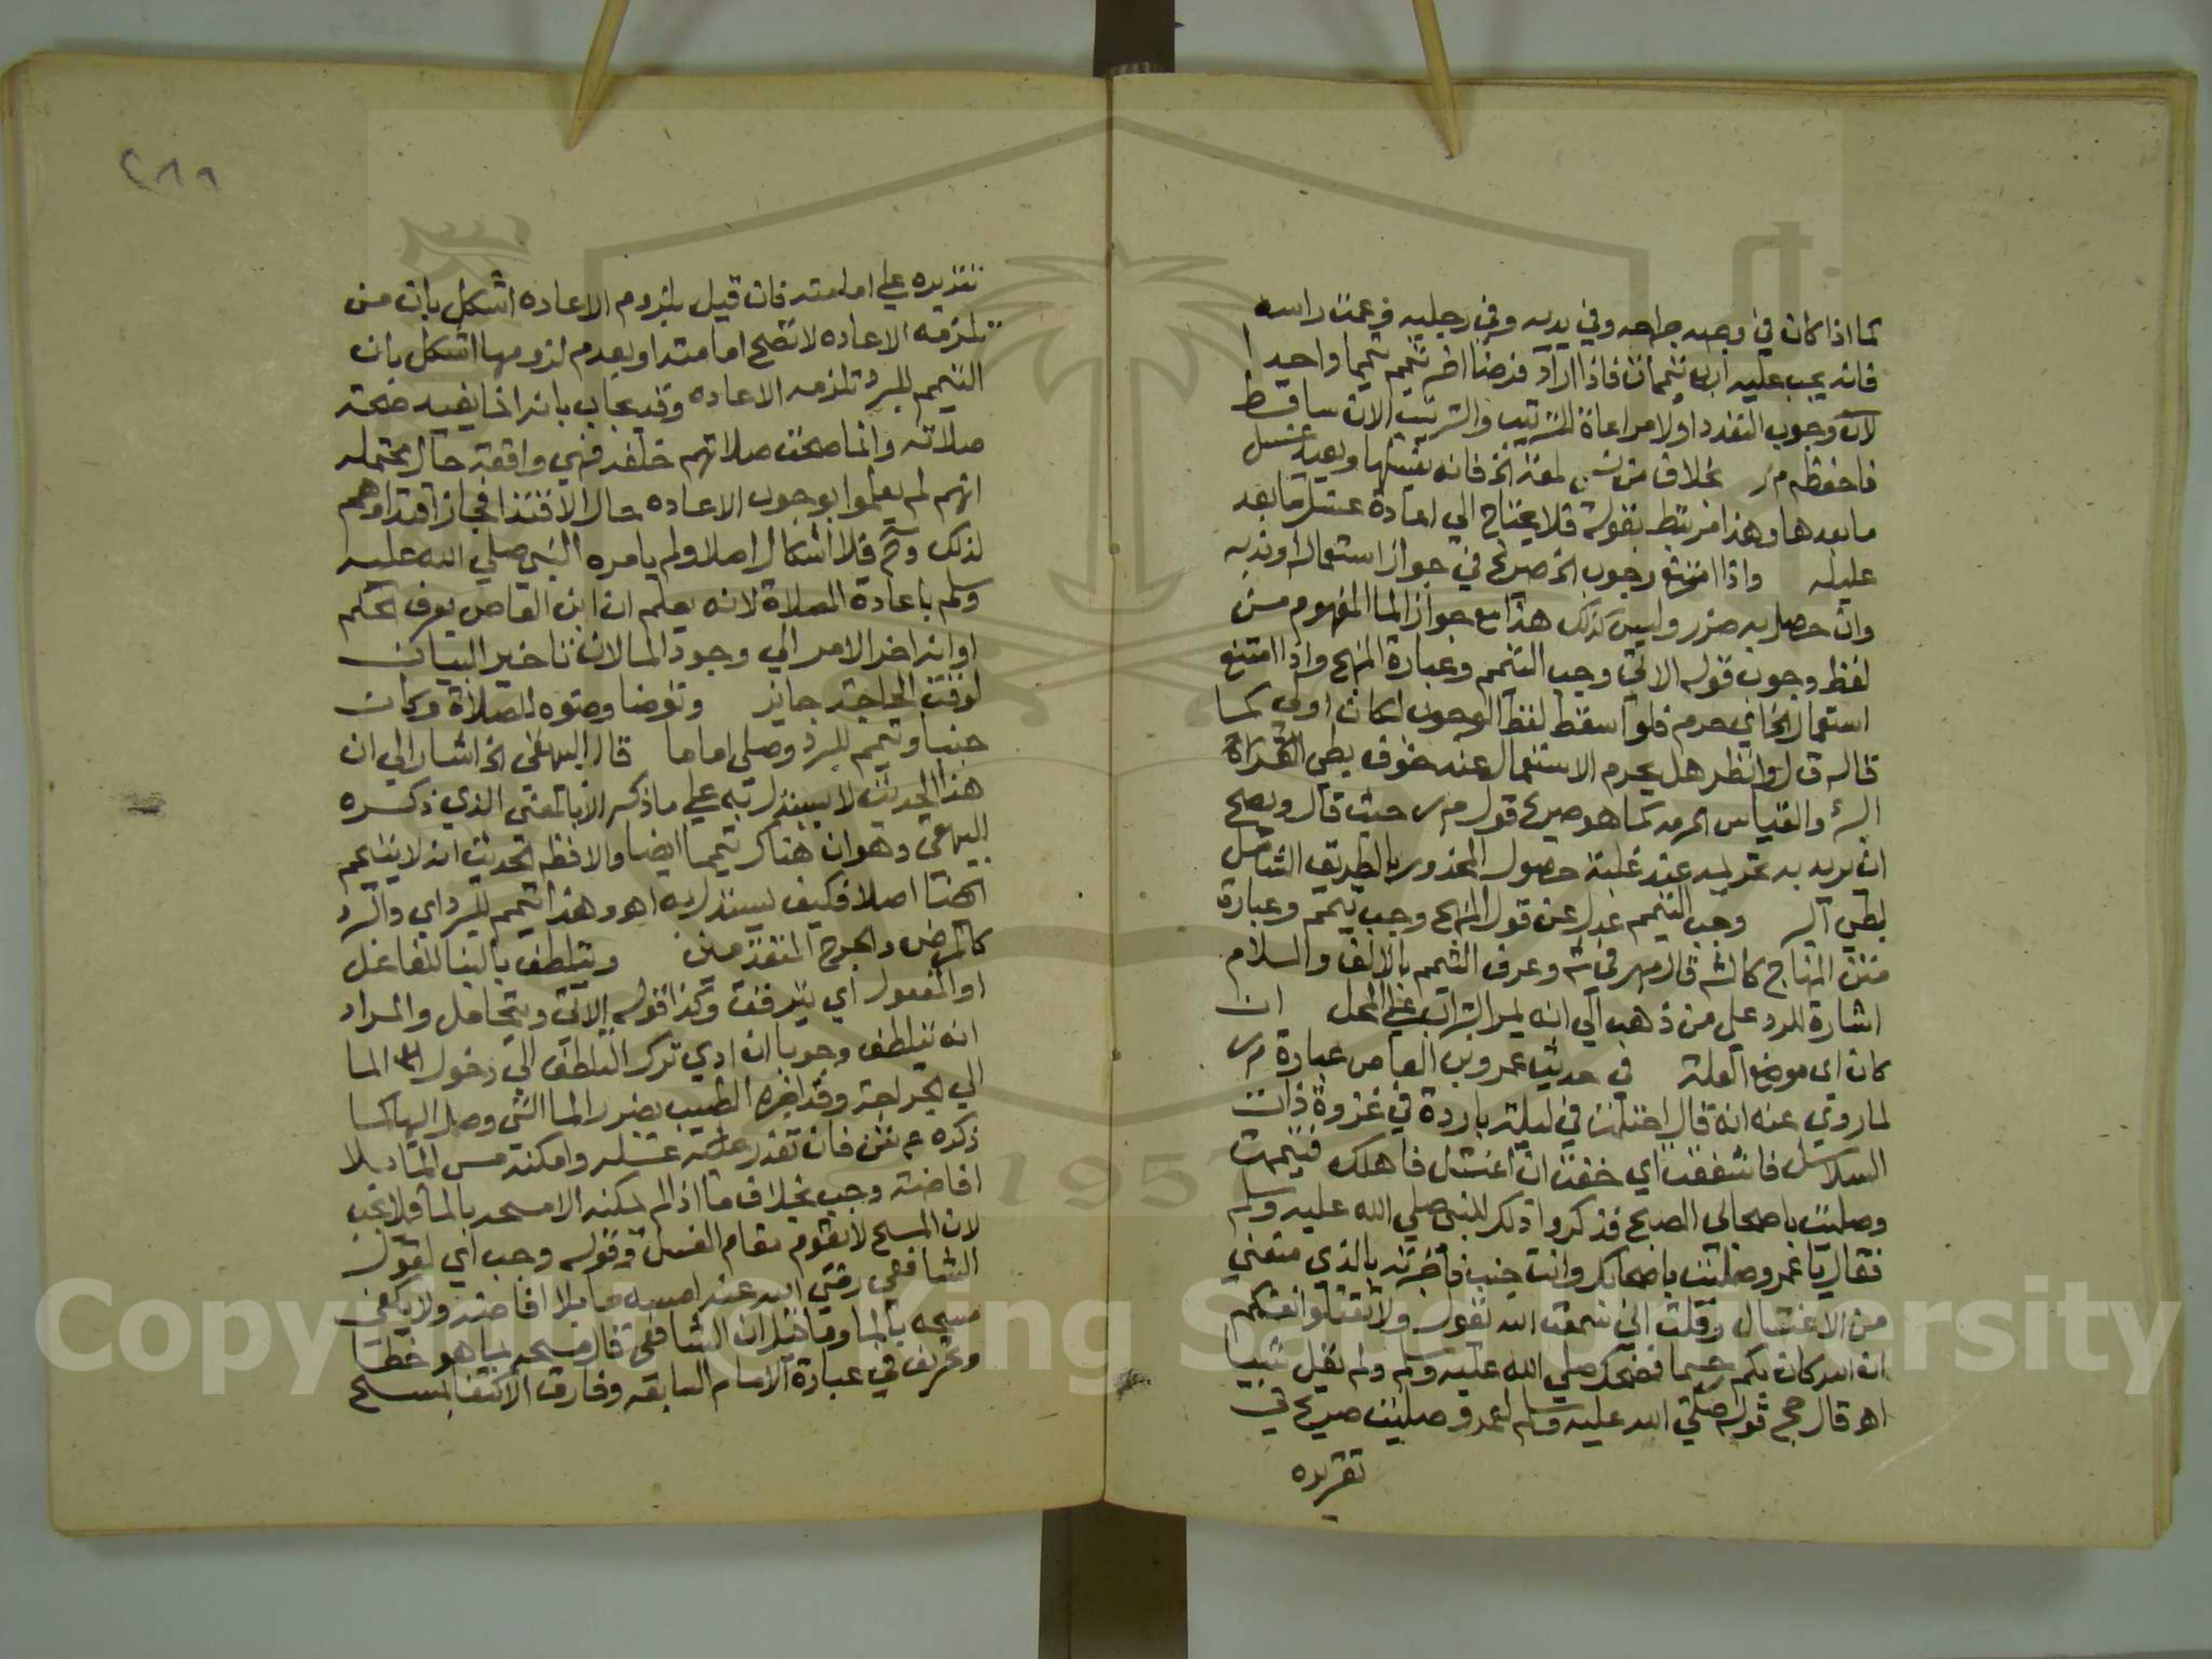 كما اذا كان في وجهه جراحه وفي يديه وفي رجليه وعمت راسه
فانه يجب عليه اربع تيممات فاذا اراد فرضا اخر تيمم تيمما واحدا
لان وجوب التعدد اولا مراعاة للترتيب والترتيب الان ساقط
فاحفظه م ر بخلاف من نسي لمعة الخ فانه يغسلها ويعيد غسل
ما بعدها وهذا مرتبط بقوله فلا يحتاج الي اعادة غسل ما بعد
عليله واذا امتنع وجوب الخ صريح في جواز استعماله وندبه
وان حصل به ضرر وليس كذلك هذا مع جواز الما المفهوم من
لفظ وجوب قوله الاتي وجب التيمم وعبارة المنهج واذا امتنع
استعماله اي حرم فلو اسقط لفظ الوجوب لكان اولي كما
قاله ق ل وانظر هل يحرم الاستعمال عند خوف بطي
البرء والقياس الحرمه كما هو صريح قول م ر حيث قال ويصح
ان يريد به تحريمه عند غلبة حصول المحذور بالطريق الشامل
لبطي البر وجب التيمم عدل عن قول المنهج وجب تيمم وعبارة
متن المنهاج كالشه قال م ر في شه وعرف التيمم بالالف والسلام
اشارة للرد على من ذهب الي انه يمر التراب على المحل ان
كان اى موضع العلة في حديث عمرو بن العاص عبارة م ر
لما روي عنه انه قال احتلمت في ليلة باردة في غزوة ذات
السلاسل فاشفقت اي خفت ان اغتسل فاهلك فتيممت
وصليت باصحابي الصبح فذكروا ذلك للنبي صلي الله عليه وسلم
فقال يا عمرو صليت باصحابك وانت جنب فاخبرته بالذي منعني
من الاغتسال وقلت اني سمعت الله يقول ولا تقتلوا انفسكم
ان الله كان بكم رحيما فضحك صلي الله عليه وسلم ولم يقل شيا
اهـ قال حج قوله صلي الله عليه وسلم لعمرو صليت صريح في
تقريره
تقريره علي امامته فان قيل بلزوم الاعاده اشكل بان من
تلزمه الاعاده لا تصح امامته او بعدم لزومها اشكل بان
التيمم للبرد تلزمه الاعاده وقد يجاب بانه انما يفيد صحة
صلاته وانما صحت صلاتهم خلفه فهي واقعة حال محتمله
انهم لم يعلموا بوجوب الاعاده حال الاقتدا فجاز اقتداوهم
لذلك وثم فلا اشكال اصلا ولم يامره النبي صلي الله عليه
وسلم باعادة الصلاة لانه يعلم ان ابن العاص يعرف الحكم
او انه اخر الامر الي وجود الما لان تاخير البيان
لوقت الحاجة جايز وتوضا وضوه للصلاة وكان
جنبا وتيمم للبرد وصلي اماما قال البيهقي الخ اشار الي ان
هذا الحديث لا يستدل به علي ما ذكر الا بالمعني الذي ذكره
البيهقي وهو ان هناك تيمما ايضا والا فظ الحديث انه لا يتيمم
هنا اصلا فكيف يستدل به اهـ وهذا تيمم للبرد اي والبرد
كالمرض والجرح المتقدمين ويتلطف بالبنا للفاعل
او المفعول اي يترفق وكذا قوله الاتي ويتحامل والمراد
انه يتلطف وجوبا ان ادي ترك التلطف الي دخول الما
الي الجراحة وقد اخبره الطبيب بضرر الما اليه وصل اليها كما
ذكره ع ش فان تعذر غسله وامكنه مس الما بلا
افاضة وجب بخلاف ما اذا لم يمكنه الا مسحه بالما فلا يجب
لان المسح لا يقوم مقام الغسل وقوله وجب اي لقول
الشافعي رضي الله عنه امسه ما بلا افاضة ولا يكفي
مسحه بالما وما قيل ان الشافعي قال مسحه بما هو خطا
وتحريف في عبارة الامام السابقه وفارق الاكتفا بمسح